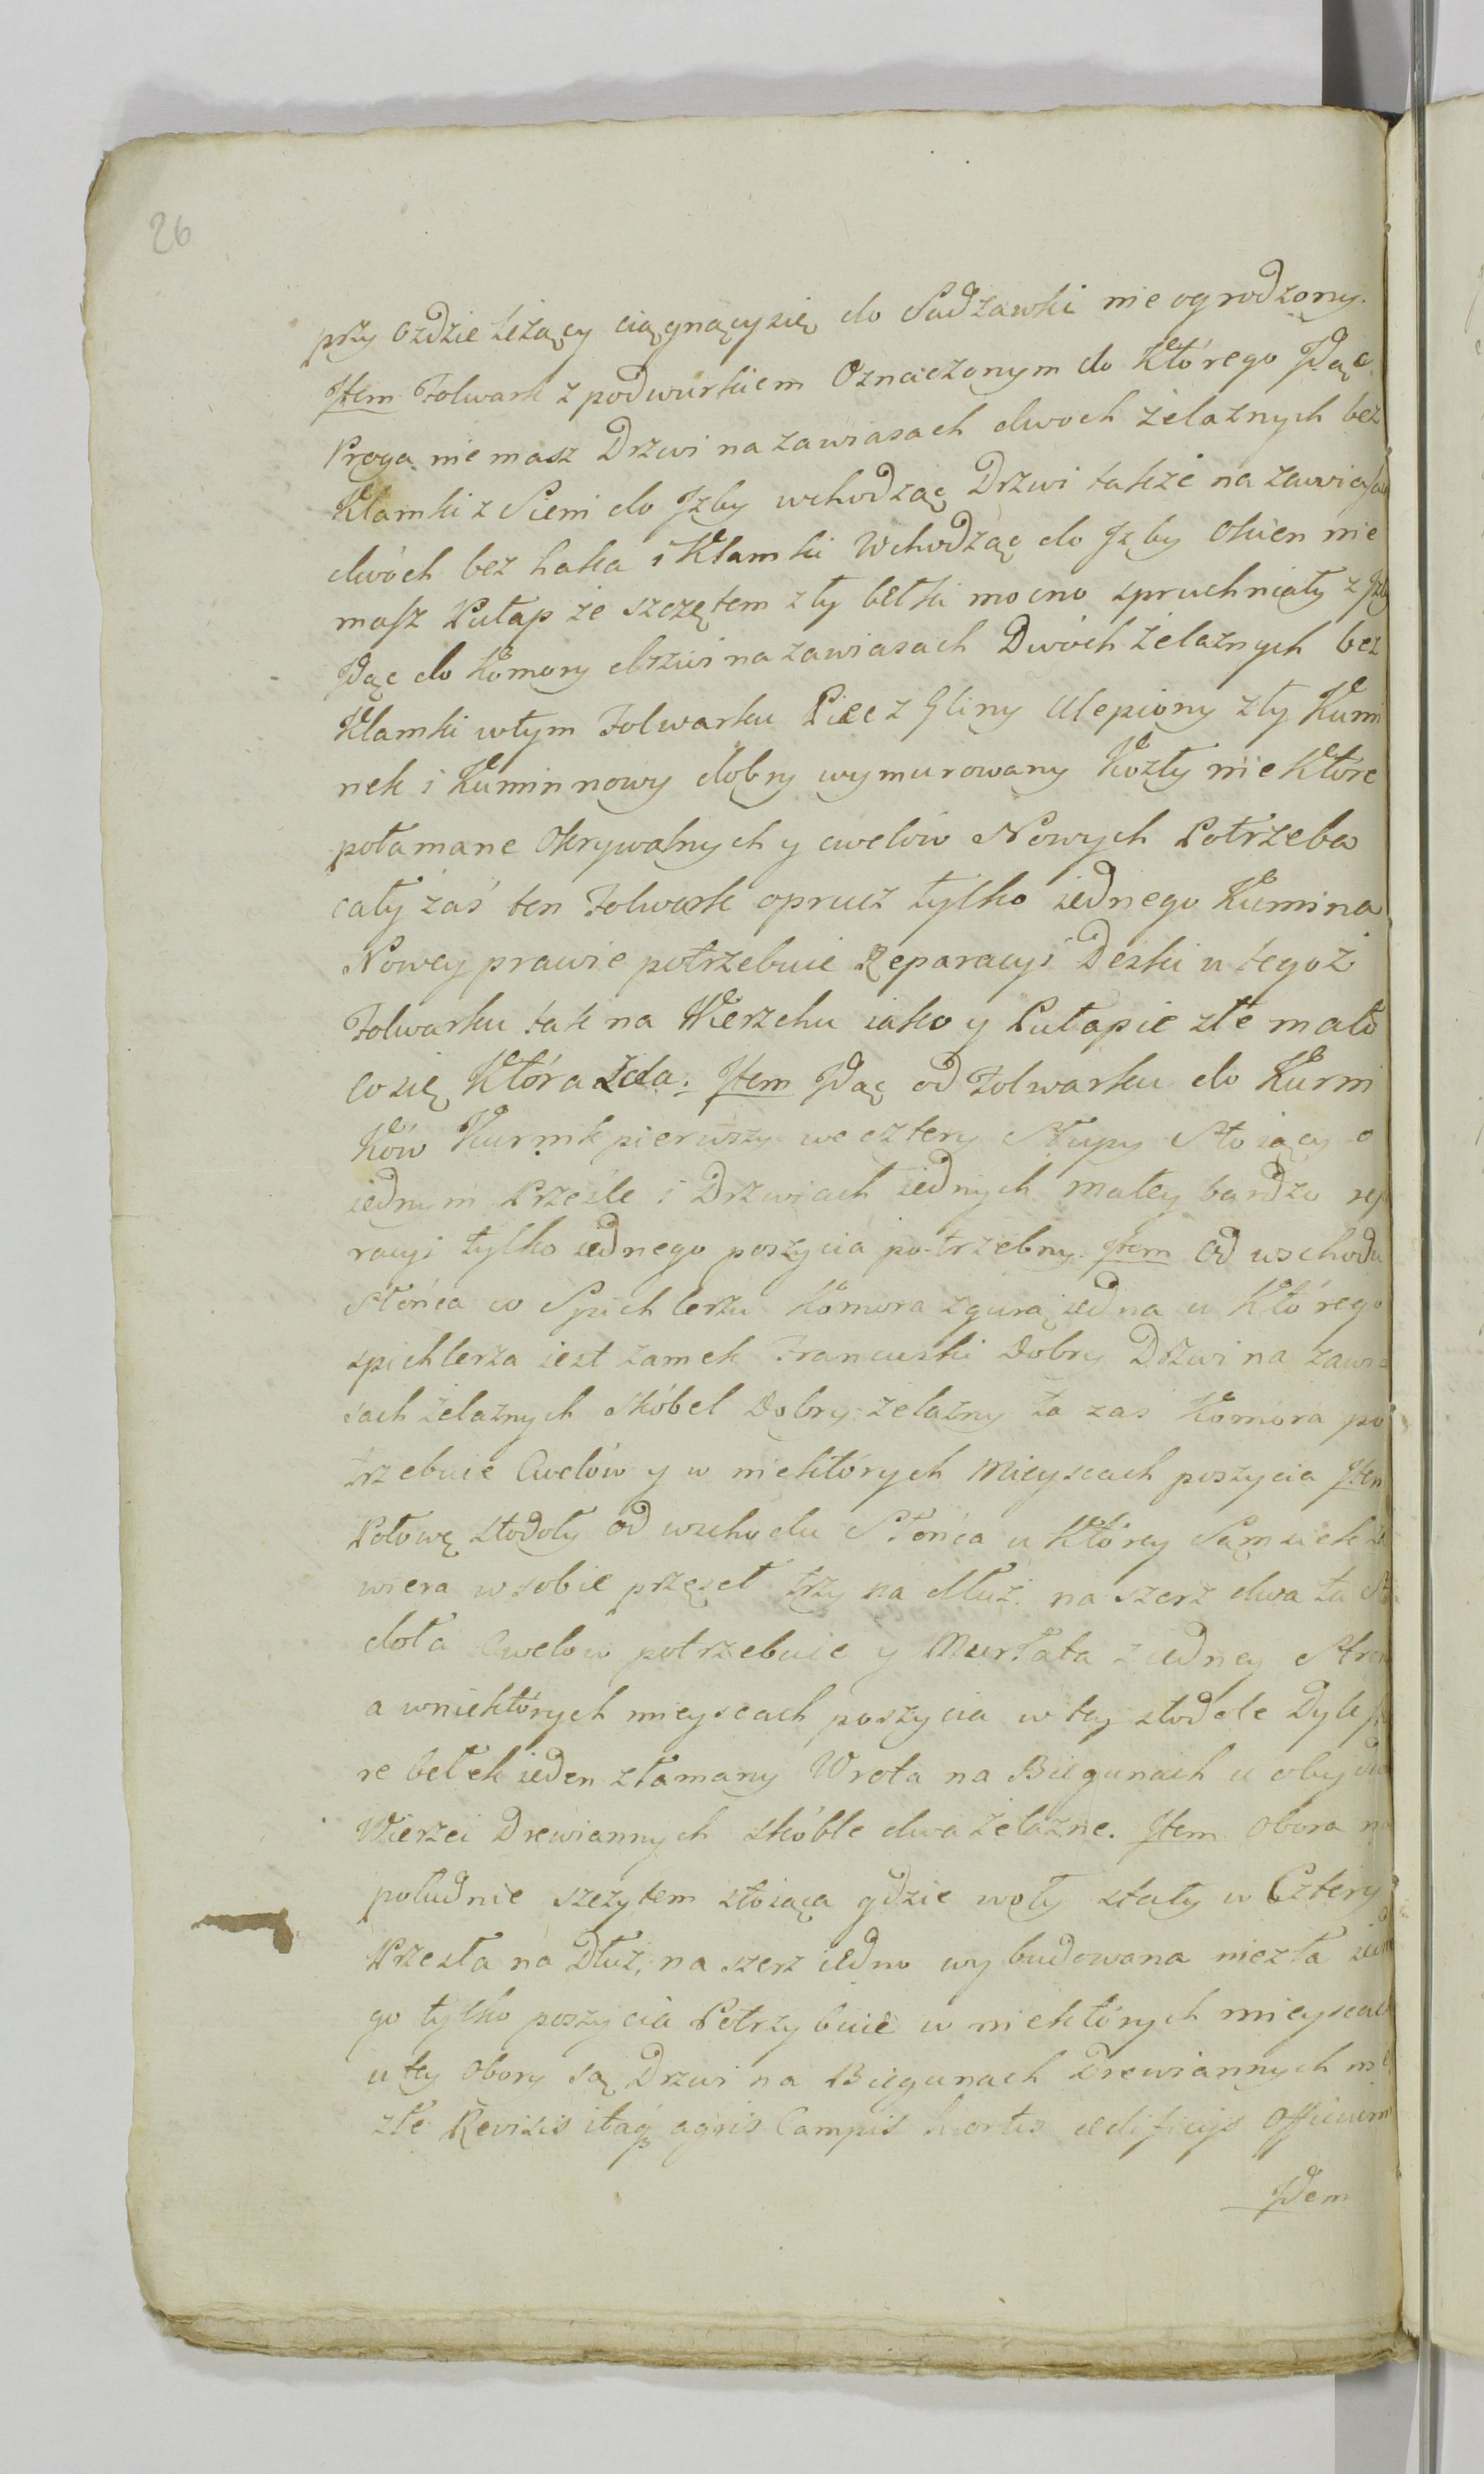 26
przy Ozdzie leżący ciągnący się do Sadzawki nie ogrodzony.
Item Folwark z podwurkiem Oznaczonym do Którego Jdąc
Proga nie masz Drzwi na zawiasach dwoch żelaznych bez
Klamki z Sieni do Jzby wchodząc Drzwi także na zawiasach
dwóch bez haka i Klamki Wchodząc do Jzby Okien nie
masz Pułap ze szczętem zły belki mocno spruchniały z Jzby
Jdąc do Komory drzwi na zawiasach Dwóch żelaznych bez
Klamki w tym Folwarku Piec z Gliny Ulepiony zły Kumi
nek i Kumin nowy dobry wymurowany Kozły nie Które
połamane Okrywalnych y cwelów Nowych Potrzeba
cały zaś ten Folwark oprucz tylko iednego Kumina
Nowey prawie potrzebuie Reparacyi Deski u tegoż
Folwarku tak na Wierzchu iako y Pułapie złe mało
co się Która zda. Item Jdąc od Folwarku do Kurni
ków Kurnik pierwszy we cztery Słupy Stoiący o
iednym Prześle i Drzwiach iednych małey bardzo rep
racyi tylko iednego poszycia potrzebny. Item Od wschodu
Słońca w Spichlerzu Komora z gurą iedna u Którego
spichlerza iest zamek Francuski dobry Drzwi na zawia
sach żelaznych Skóbel Dobry żelazny ta zas Komora po
trzebuie Cwelów y w niektórych Mieyscach poszycia Item
Połowę stodoły od wschodu Słońca u Którey Sąmsiek za
wiera w sobie przęseł trzy na dłuż. na szerz dwa ta Sto
doła Cwelow potrzebuie y Murłata z iedney Stron
a w niektórych mieyscach poszycia w tey stodole Dyle
re belek ieden złamany Wrota na Biegunach u oby
Wierzei Drewiannych skóble dwa żelazne. Item Obora na
południe szczytem stoiąca gdzie woły stały w Cztery
Przesła na Dłuż, na szerz iedno wybudowana niezła iedne
go tylko poszycia Potrzybuie w niektórych mieyscach
u tey Obory są Drzwi na Biegunach Drewiannych nie
złe Revisis itaq agris Campis hortis aedificijs Officium
Jdem